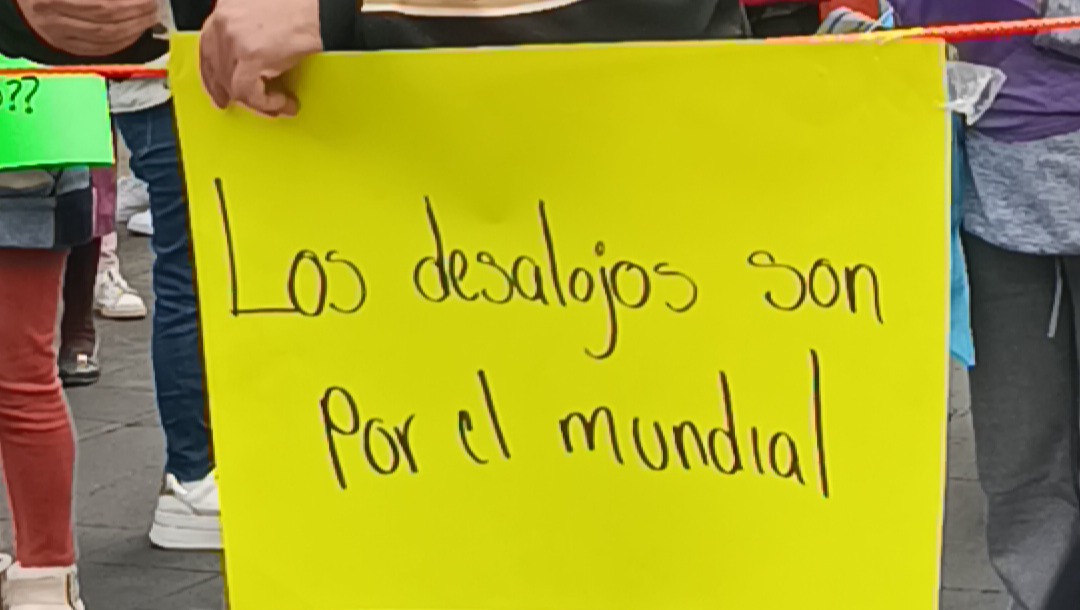 ??
Los desalojos son
Por el mundial